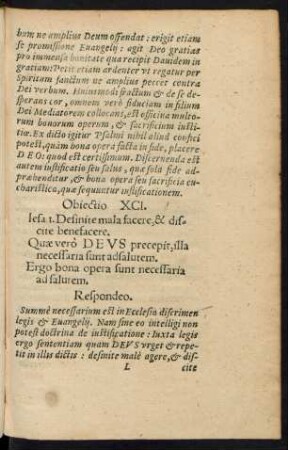 bum ne amplius Deum offendat: erigit etiam
se promissione Euangelij: agit Deo gratias
pro immensa bonitate qua recipit Dauidem in
gratiam: Petit etiam ardenter vt regatur per
Spiritum sanctum ne amplius peccet contra
Dei verbum. Huiusmodi fractum & de se de-
sperans cor, omnem verò fiduciam in filium
Dei Mediatorem collocans, est officina multo-
rum bonorum operum, & sacrificium iusti-
tiæ. Ex dicto igitur Psalmi nihil aliud confici
potest, quàm bona opera facta in fide, placere
DEO: quod est certissimum. Discernenda est
autem iustificatio seu salus, quæ sola fide ad-
præhendatur, & bona opera seu sacrificia eu-
charistica, quæ sequuntur iustificationem.
Obiectio XCI.
Iesa 1. Desinite mala facere, & dis-
cite benefacere.
Quæ verò DEVS precepit, illa
necessaria sunt ad salutem.
Ergo bona opera sunt necessaria
ad salutem.
Respondeo.
Summè necessarium est in Ecclesia discrimen
legis & Euangelij. Nam sine eo intelligi non
potest doctrina de iustificatione: Iuxta legis
ergo sententiam quam DEVS vrget & repe-
tit in illis dictis: desinite malè agere, & dis-
L cite